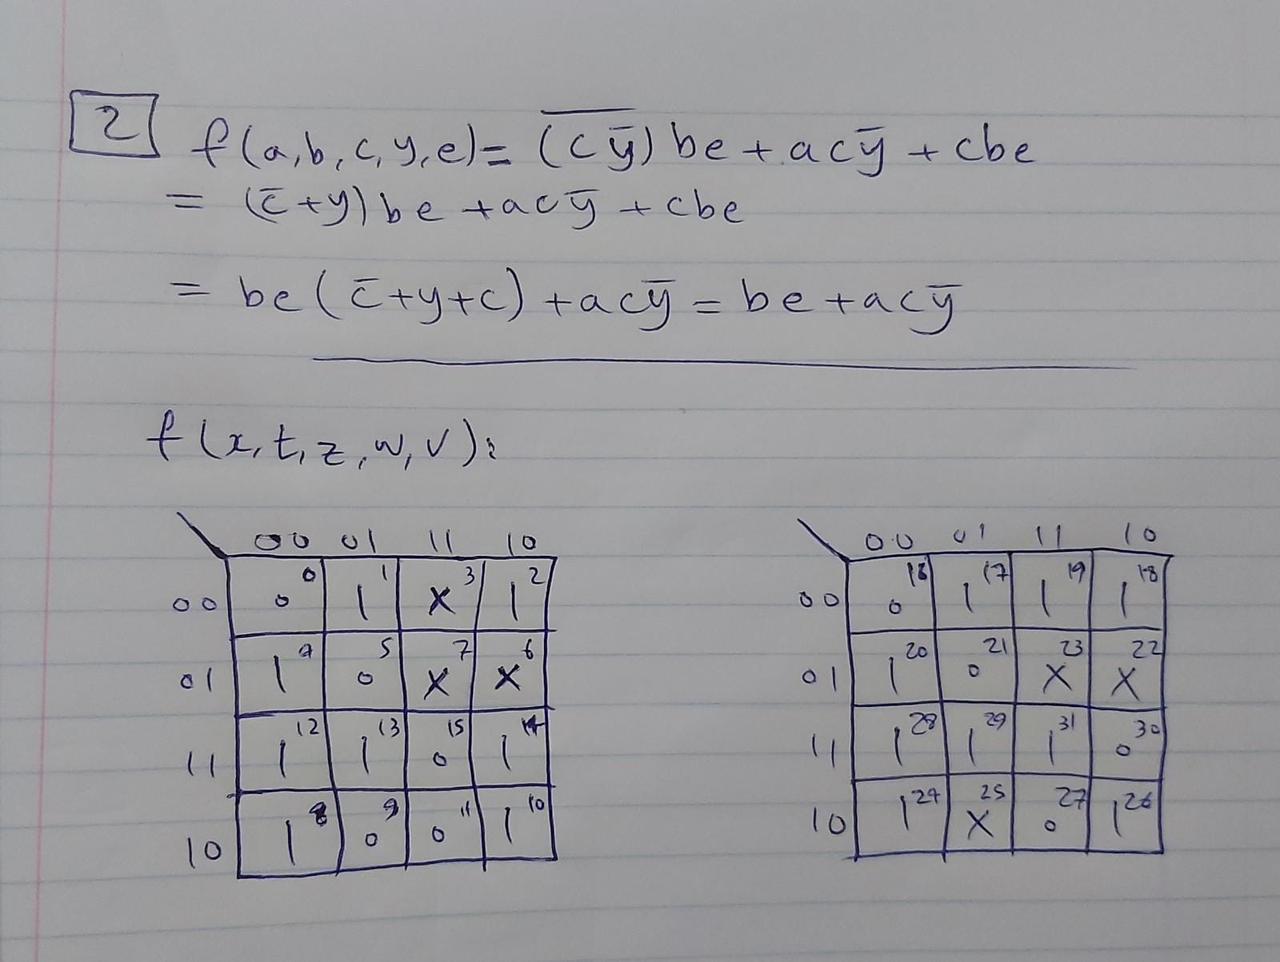 2 f(a,b,c,y,e)= \overline{(cȳ)} be + acȳ + cbe
= (c̄+y)be + acȳ + cbe
= be(c̄+y+c) + acȳ = be + acȳ
f(x,t,z,w,v):
00 01 11 10
00 0 0 1 1 X 3 1 2
01 1 4 0 5 X 7 X 6
11 1 12 1 13 0 15 1 14
10 1 8 0 9 0 11 1 10
00 01 11 10
00 0 16 1 17 1 19 1 18
01 1 20 0 21 X 23 X 22
11 1 28 1 29 1 31 0 30
10 1 24 X 25 0 27 1 26